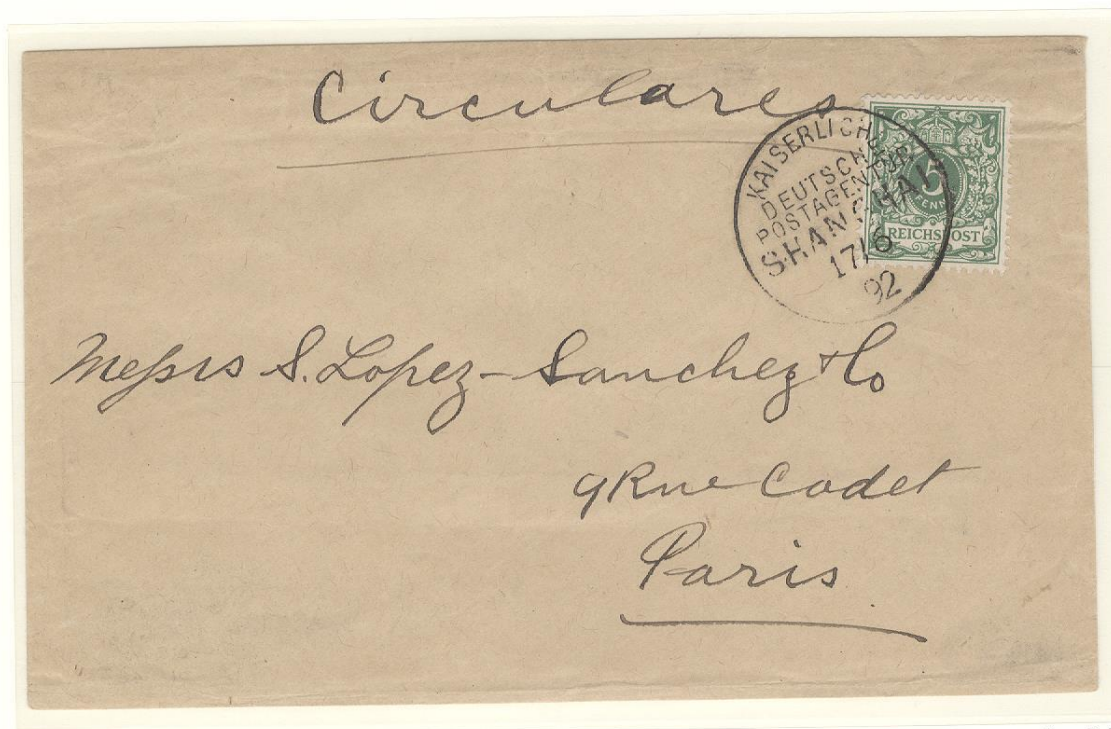 Circulares
KAISERLICHE
DEUTSCHE
POSTAGENTUR
SHANGHAI
17/6
92
5
PFENNIG
REICHSPOST
Messrs S. Lopez-Sanchez & Co
9 Rue Cadet
Paris